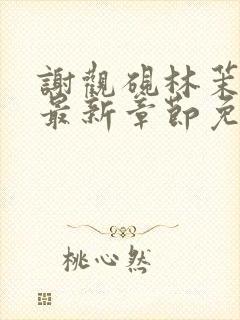 謝觀硯林茉
最新章節免
桃心然